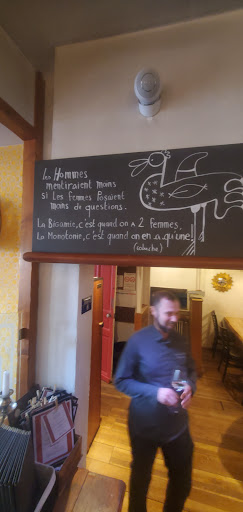 Les Hommes
mentiraient moins
si les femmes posaient
moins de questions.
La Bigamie, c'est quand on a 2 femmes,
La Monotonie, c'est quand on en a qu'une!